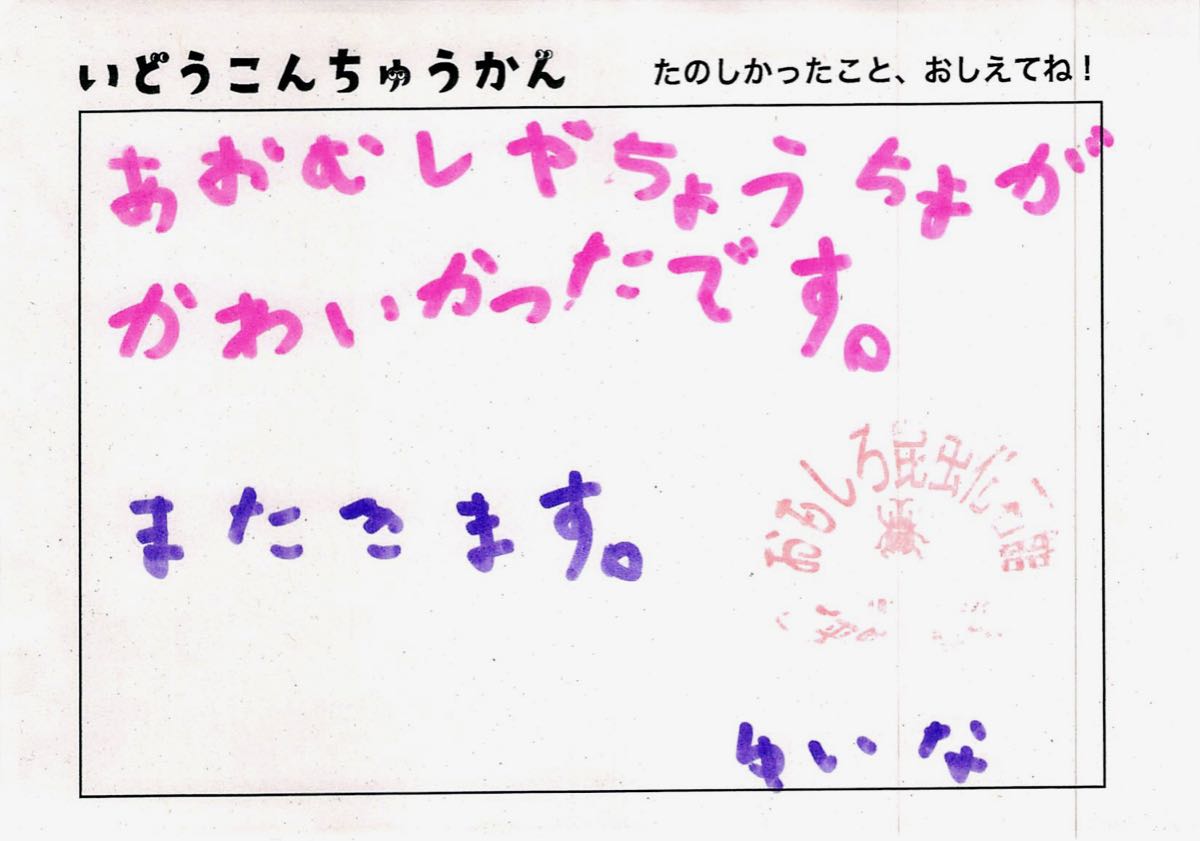 いどうこんちゅうかん
たのしかったこと、おしえてね！
あおむしやちょうちょが
かわいかったです。
またきます。
おもしろ昆虫化石館
ゆいな